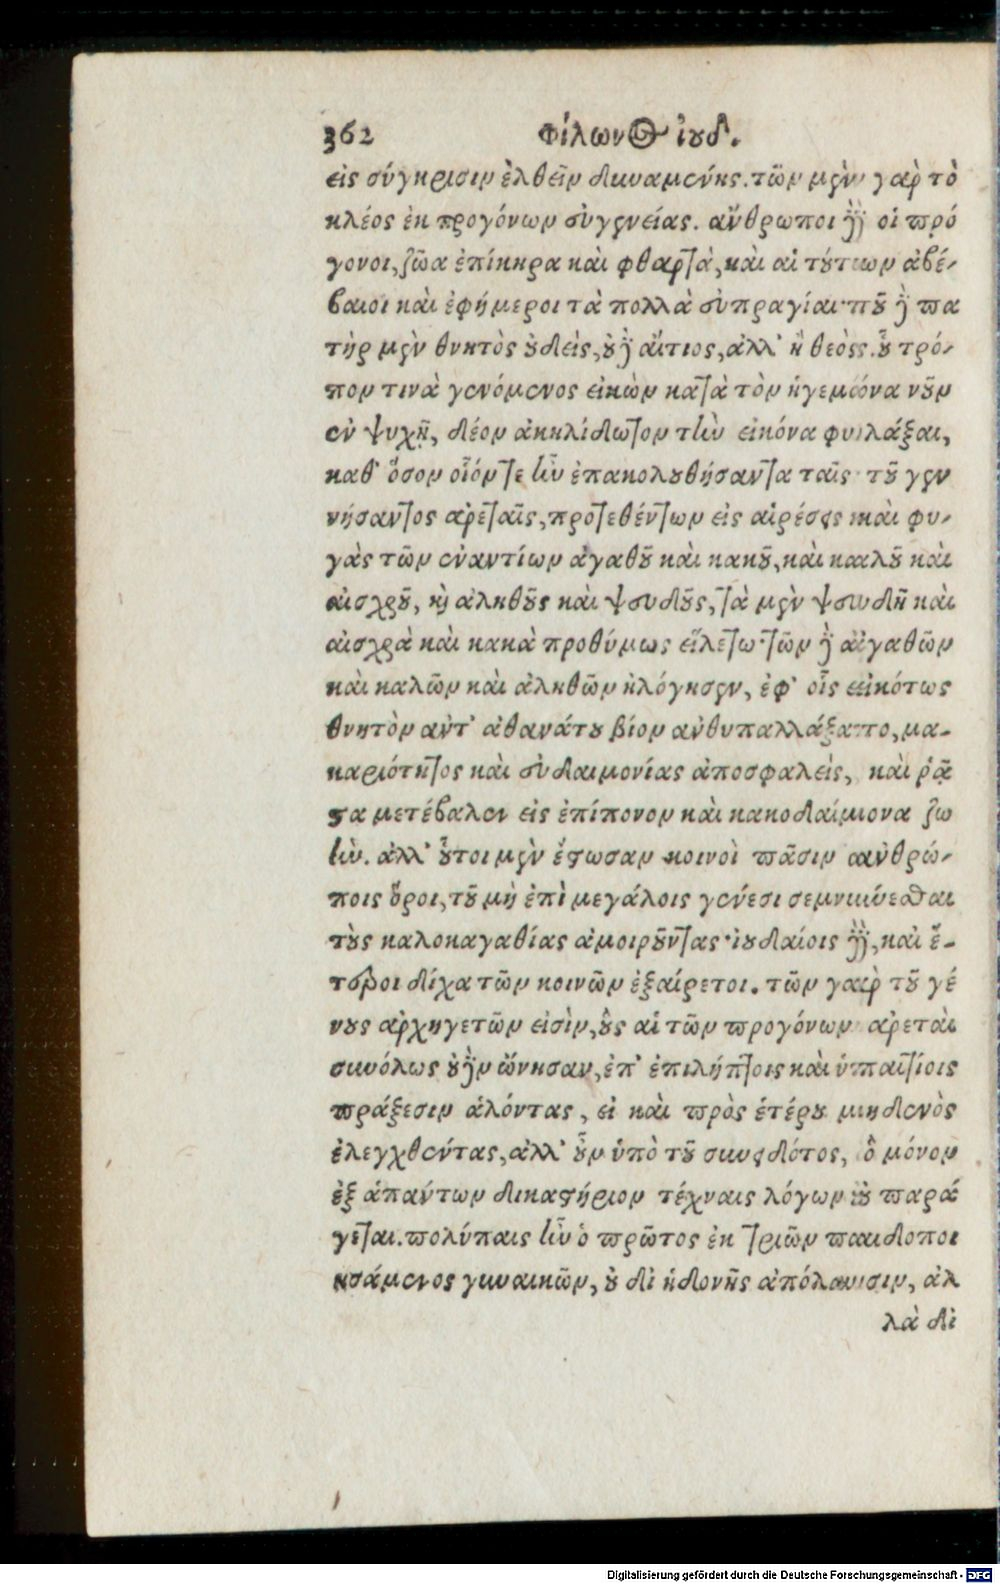 362 Φίλωνος ἰουδ.
εἰς σύγκρισιν ἐλθεῖν δυναμένης. τῶν μὲν γὰρ τὸ
κλέος ἐκ προγόνων εὐγενείας. ἄνθρωποι δὲ οἱ πρό
γονοι, ζῶα ἐπίκηρα καὶ φθαρτὰ, καὶ αἱ τούτων ἀβέ-
βαιοι καὶ ἐφήμεροι τὰ πολλὰ εὐπραγίαι· τοῦ δὲ πα
τὴρ μὲν θνητὸς οὐδεὶς, ὁ δὲ ἀΐτιος, ἀλλ' ἢ θεὸς. οὗ τρό-
πον τινὰ γενόμενος εἰκὼν κατὰ τὸν ἡγεμόνα νοῦν
ἐν ψυχῇ, δέον ἀκηλίδωτον τὴν εἰκόνα φυλάξαι,
καθ' ὅσον οἷόν τε ἦν ἐπακολουθήσαντα ταῖς τοῦ γεν
νήσαντος ἀρεταῖς, προτεθέντων εἰς αἱρέσεις καὶ φυ-
γὰς τῶν ἐναντίων ἀγαθοῦ καὶ κακοῦ, καὶ καλοῦ καὶ
αἰσχροῦ, καὶ ἀληθοῦς καὶ ψευδοῦς, τὰ μὲν ψευδῆ καὶ
αἰσχρὰ καὶ κακὰ προθύμως εἵλετο· τῶν δὲ ἀγαθῶν
καὶ καλῶν καὶ ἀληθῶν ἠλόγησεν, ἐφ' οἷς εἰκότως
θνητὸν ἀντ' ἀθανάτου βίον ἀνθυπαλλάξατο, μα-
καριότητος καὶ εὐδαιμονίας ἀποσφαλεὶς, καὶ ῥᾷ
στα μετέβαλεν εἰς ἐπίπονον καὶ κακοδαίμονα ζω
ὴν. ἀλλ' οὗτοι μὲν ἔστωσαν κοινοὶ πᾶσιν ἀνθρώ-
ποις ὅροι, τοῦ μὴ ἐπὶ μεγάλοις γένεσι σεμνύνεσθαι
τοὺς καλοκαγαθίας ἀμοιροῦντας· ἰουδαίοις δὲ, καὶ ἕ-
τεροι δίχα τῶν κοινῶν ἐξαίρετοι. τῶν γὰρ τοῦ γέ
νους ἀρχηγετῶν εἰσὶν, οὓς αἱ τῶν προγόνων ἀρεταὶ
συνόλως οὐδὲν ὤνησαν, ἐπ' ἐπιλήπτοις καὶ ὑπαιτίοις
πράξεσιν ἁλόντας, εἰ καὶ πρὸς ἑτέρου μηδενὸς
ἐλεγχθέντας, ἀλλ' οὖν ὑπὸ τοῦ συνειδότος, ὃ μόνον
ἐξ ἁπάντων δικαστήριον τέχναις λόγων οὐ παρά
γεται. πολύπαις ἦν ὁ πρῶτος ἐκ τριῶν παιδοποι
ησάμενος γυναικῶν, οὐ δι' ἡδονῆς ἀπόλαυσιν, ἀλ
λὰ δι'
Digitalisierung gefördert durch die Deutsche Forschungsgemeinschaft - DFG